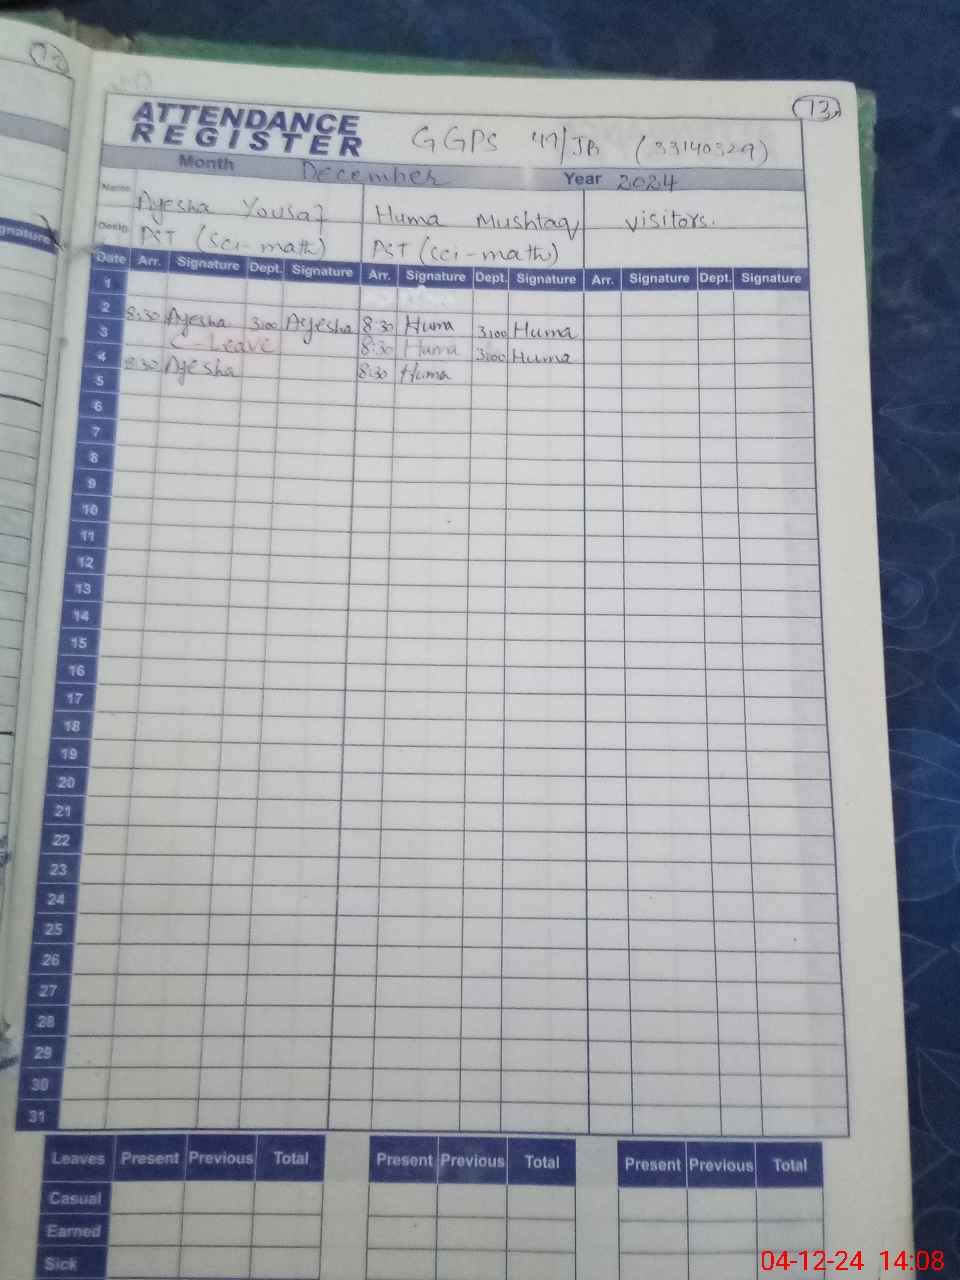 73
ATTENDANCE
REGISTER
GGPS 47/JB (33140329)
Month December Year 2024
Name Ayesha Yousaf Huma Mushtaq visitors.
Desig. PST (sci-math) PST (sci-math)
Date Arr. Signature Dept. Signature Arr. Signature Dept. Signature Arr. Signature Dept. Signature
1
2 8:30 Ayesha 3:00 Ayesha 8:30 Huma 3:00 Huma
3 C-Leave 8:30 Huma 3:00 Huma
4 8:30 Ayesha 8:30 Huma
5
6
7
8
9
10
11
12
13
14
15
16
17
18
19
20
21
22
23
24
25
26
27
28
29
30
31
Leaves Present Previous Total Present Previous Total Present Previous Total
Casual
Earned
Sick
04-12-24 14:08